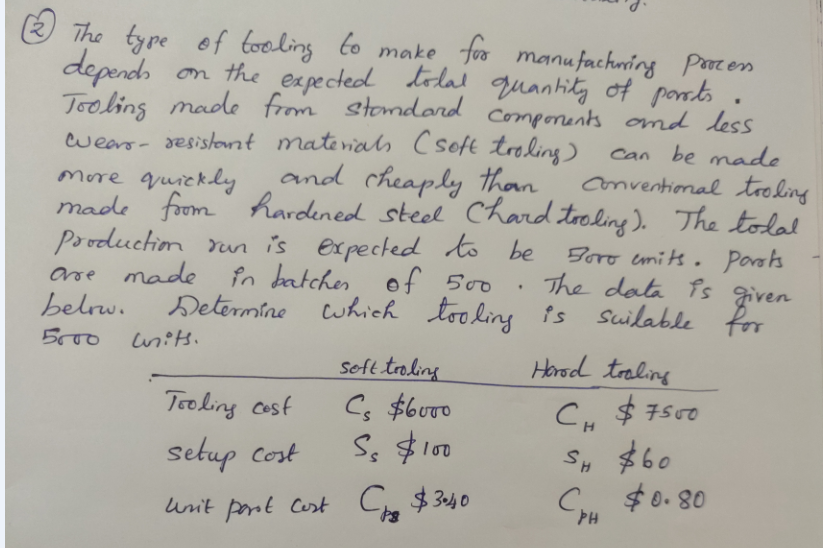 ② The type of tooling to make for manufacturing process
depends on the expected total quantity of parts.
Tooling made from standard components and less
wear-resistant materials (soft tooling) can be made
more quickly and cheaply than conventional tooling
made from hardened steel (hard tooling). The total
Production run is expected to be 5000 units. Parts
are made in batches of 500. The data is given
below. Determine which tooling is suitable for
5000 units.
soft tooling Hard tooling
Tooling cost C_s $6000 C_H $7500
setup cost S_s $100 S_H $60
unit part cost C_ps $3.40 C_PH $0.80